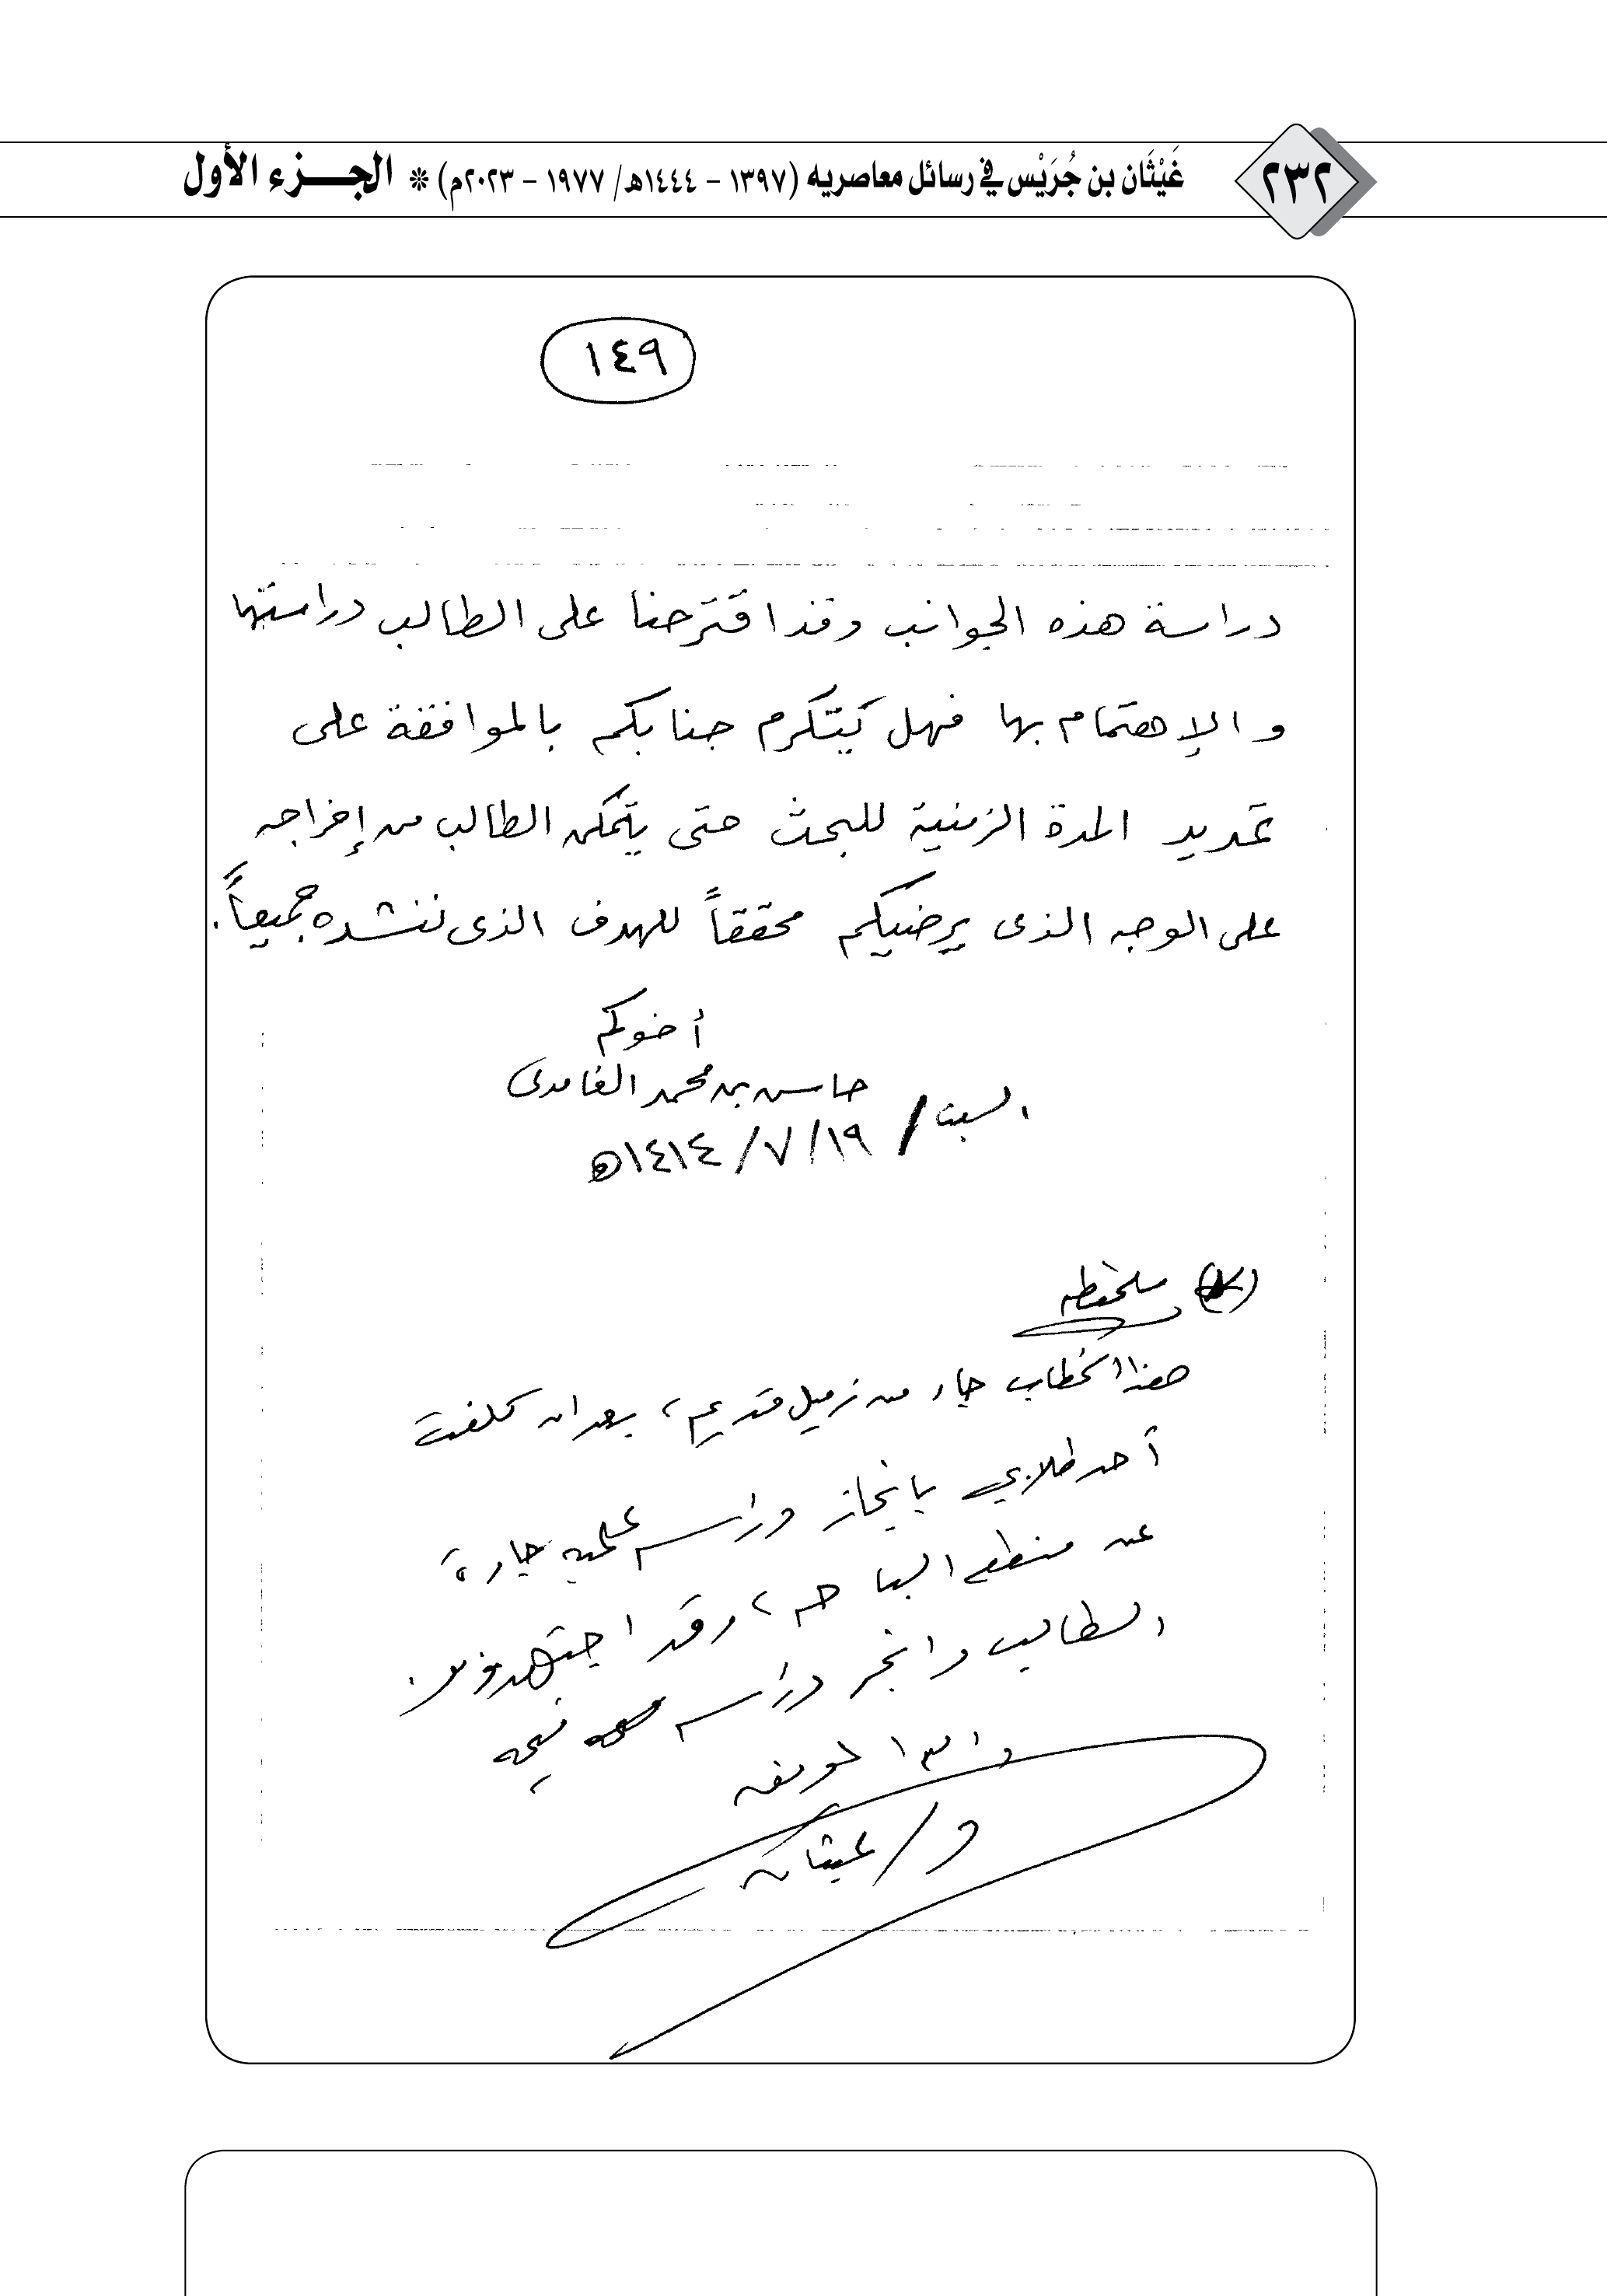 ٢٣٢
غَيْثَان بن جُرَيْس في رسائل معاصريه (١٣٩٧ - ١٤٤٤هـ/ ١٩٧٧ - ٢٠٢٣م) * الجـــزء الأول
١٤٩
دراسة هذه الجوانب وقد اقترحنا على الطالب دراستها
والإهتمام بها فهل يتكرم جنابكم بالموافقة على
تمديد المدة الزمنية للبحث حتى يتمكن الطالب من إخراجه
على الوجه الذى يرضيكم محققاً للهدف الذى ننشده جميعاً.
أخوكم
حاسن بن محمد الغامدى
السبت / ١٩/ ٧/ ١٤١٤هـ
ملحظه
هذا الخطاب جاء من زميل قديم، بعد ان كلفت
أحد طلابي بإنجاز دراسه علميه جادة
عن منطقه الباحه، وقد اجتهد
الطالب وانجز دراسه
والله الموفق
د/ غيثان